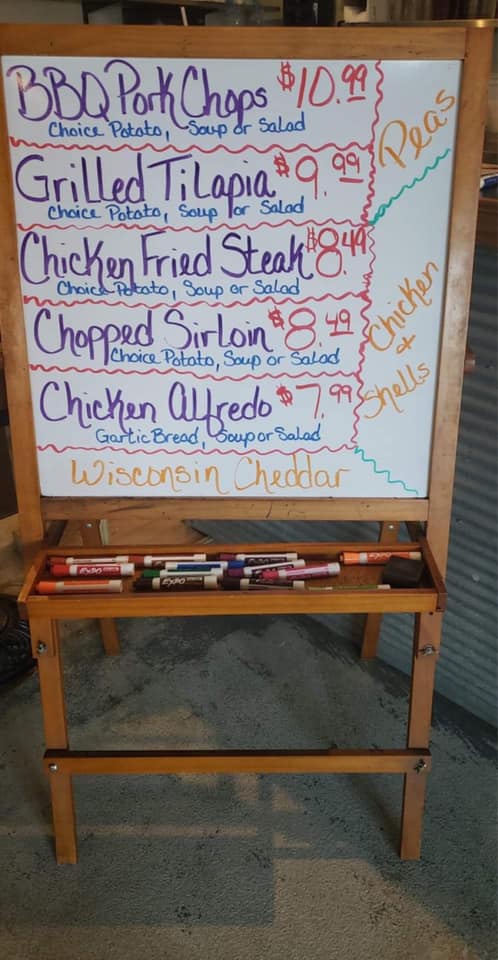 BBQ Pork Chops $10.99
Choice Potato, Soup or Salad
Grilled Tilapia $9.99
Choice Potato, Soup or Salad
Chicken Fried Steak $8.49
Choice Potato, Soup or Salad
Chopped Sirloin $8.49
Choice Potato, Soup or Salad
Chicken Alfredo $7.99
Garlic Bread, Soup or Salad
Peas
Chicken
&
Shells
Wisconsin Cheddar
EXPO
EXPO
EXPO
EXPO
EXPO